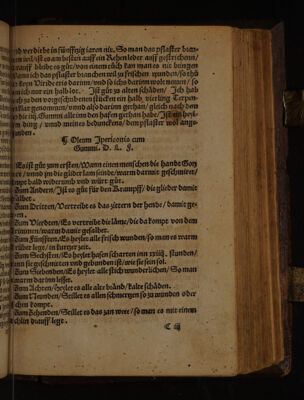 vnd verdirbt in fünfftzig jaren nit. So man das pflaster brau-
chen wil/ ist am besten auff ein Rehenleder auff gestrichen/
darauff bleibt es gůt/ von einem tůch kan man es nit bringen
Wann ich das pflaster brauchen wil zu frischen wunden/ so thů
ich kein Viride eris darum/ vnd so ichs darinn wolt nemen/ so
nem ich nur ein halb lot. Ist gůt zu alten schäden/ Ich hab
auch zu den vorgschribnen stücken ein halb vierling Terpen-
genommen/ vnnd also darinn gethan/ gleich nach dem
die iiij. Gummi alle inn den hafen gethan habe/ Ist ein heyl-
ding/ vnnd meines bedunckens/ dem pflaster wol ange-
stunden.
¶ Oleum Ipericonis cum
Gummi. D. L. F.
Es ist gůt zum ersten/ Wann einem menschen die handt Gott
rürt/ vnnd jm die glider lam seind/ warm darmit geschmiert/
kompt bald widerumb vnd würt gůt.
Zum Andern/ Ist es gůt für den Krampff/ die glieder damit
gesalbet.
Zum Dritten/ Vertreibt es das zittern der hende/ damit ge-
Zum Vierdten/ Es vertreibt die läme/ die da kompt von dem
krimmen/ warm damit gesalbet.
Zum Fünfften/ Es heylet alle frisch wunden/ so man es warm
drüber legt/ in kurtzer zeit.
Zum Sechsten/ Es heylet hasen scharten inn xxiiij. stunden/
wann sie geschnitten vnd gebunden ist/ wie sie sein sol.
Zum Siebenden/ Es heylet alle stich wunderlichen/ So man
es warm darinn lesset.
Zum Achten/ heylet es alle alte bränd/ kalte schäden.
Zum Neunden/ Stillet es allen schmertzen so zu wunden oder
stichen kompt.
Zum Zehenden/ Stillet es das zan wee/ so man es mit einem
tüchlin drauff legt.
C iij